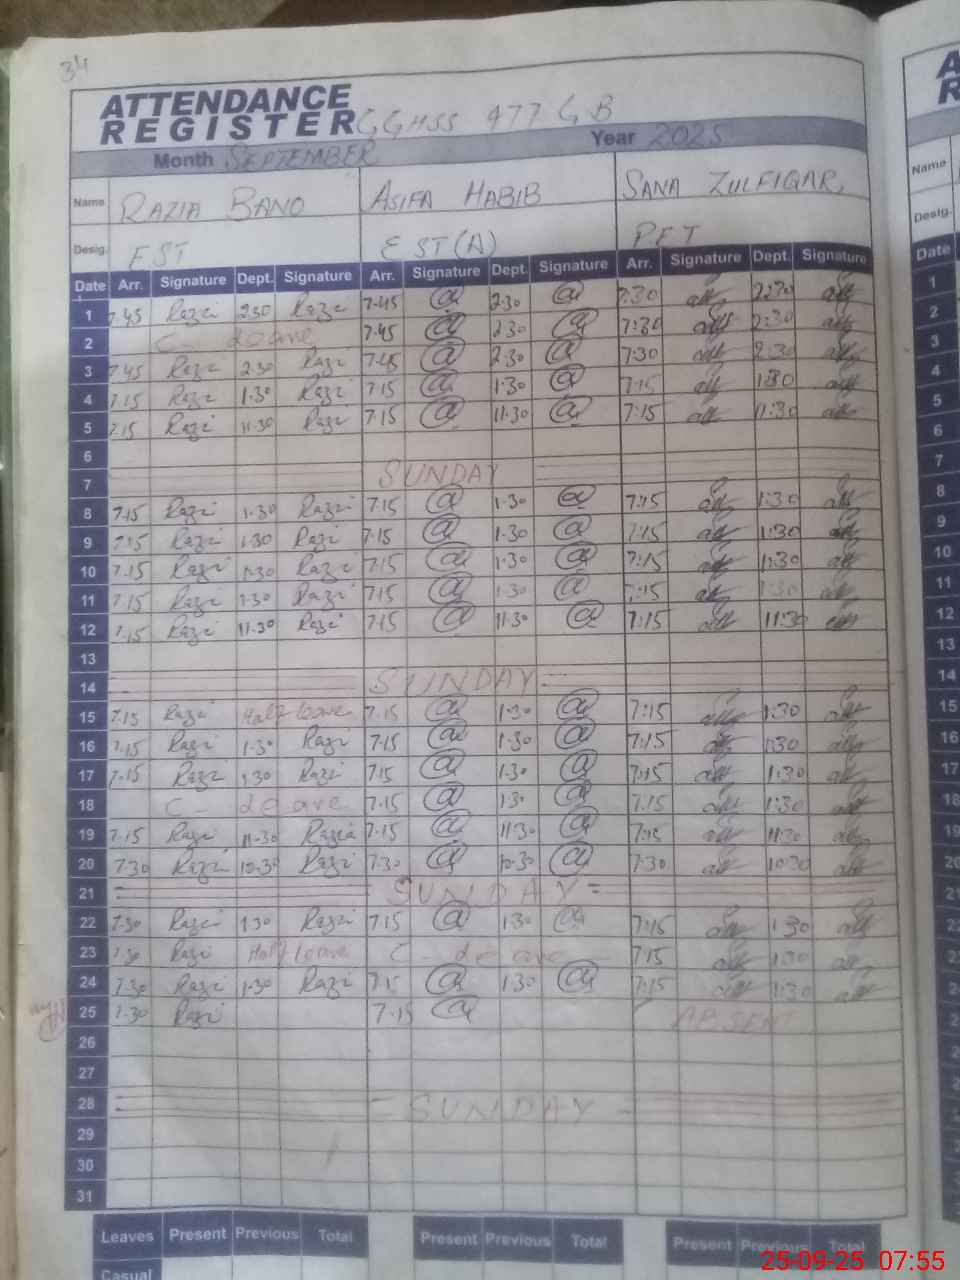 34
ATTENDANCE
REGISTER GGHSS 477 GB
Month SEPTEMBER Year 2025
Name RAZIA BANO ASIFA HABIB SANA ZULFIQAR Name
Desig. EST EST(A) PET Desig.
Date Arr. Signature Dept. Signature Arr. Signature Dept. Signature Arr. Signature Dept. Signature Date
1 7-45 Razi 2-30 Razi 7-45 2-30 7:30 2:30 1
2 C- leave 7-45 2-30 7:30 2:30 2
3 7-45 Razi 2-30 Razi 7-45 2-30 7:30 2:30 3
4 7-15 Razi 1-30 Razi 7-15 1-30 7:15 1:30 4
5 7-15 Razi 11-30 Razi 7-15 11-30 7:15 11:30 5
6 6
7 SUNDAY 7
8 7-15 Razi 1-30 Razi 7-15 1-30 7:15 1:30 8
9 7-15 Razi 1-30 Razi 7-15 1-30 7:15 1:30 9
10 7-15 Razi 1-30 Razi 7-15 1-30 7:15 1:30 10
11 7-15 Razi 1-30 Razi 7-15 1-30 7:15 1:30 11
12 7-15 Razi 11-30 Razi 7-15 11-30 7:15 11:30 12
13 13
14 SUNDAY 14
15 7-15 Razi Half leave 7-15 1-30 7:15 1:30 15
16 7-15 Razi 1-30 Razi 7-15 1-30 7:15 1:30 16
17 7-15 Razi 1-30 Razi 7-15 1-30 7:15 1:30 17
18 C- leave 7-15 1-30 7:15 1:30 18
19 7-15 Razi 11-30 Razia 7-15 11-30 7:15 11:30 19
20 7-30 Razi 10-30 Razi 7-30 10-30 7:30 10:30 20
21 SUNDAY 21
22 7-30 Razi 1-30 Razi 7-15 1-30 7:15 1:30
23 7-30 Razi Half leave C- leave 7:15 1:30
24 7-30 Razi 1-30 Razi 7-15 1-30 7:15 1:30
25 7-30 Razi 7-15 ABSENT
26
27
28 SUNDAY
29
30
31
Leaves Present Previous Total Present Previous Total Present Previous Total
Casual
25-09-25 07:55